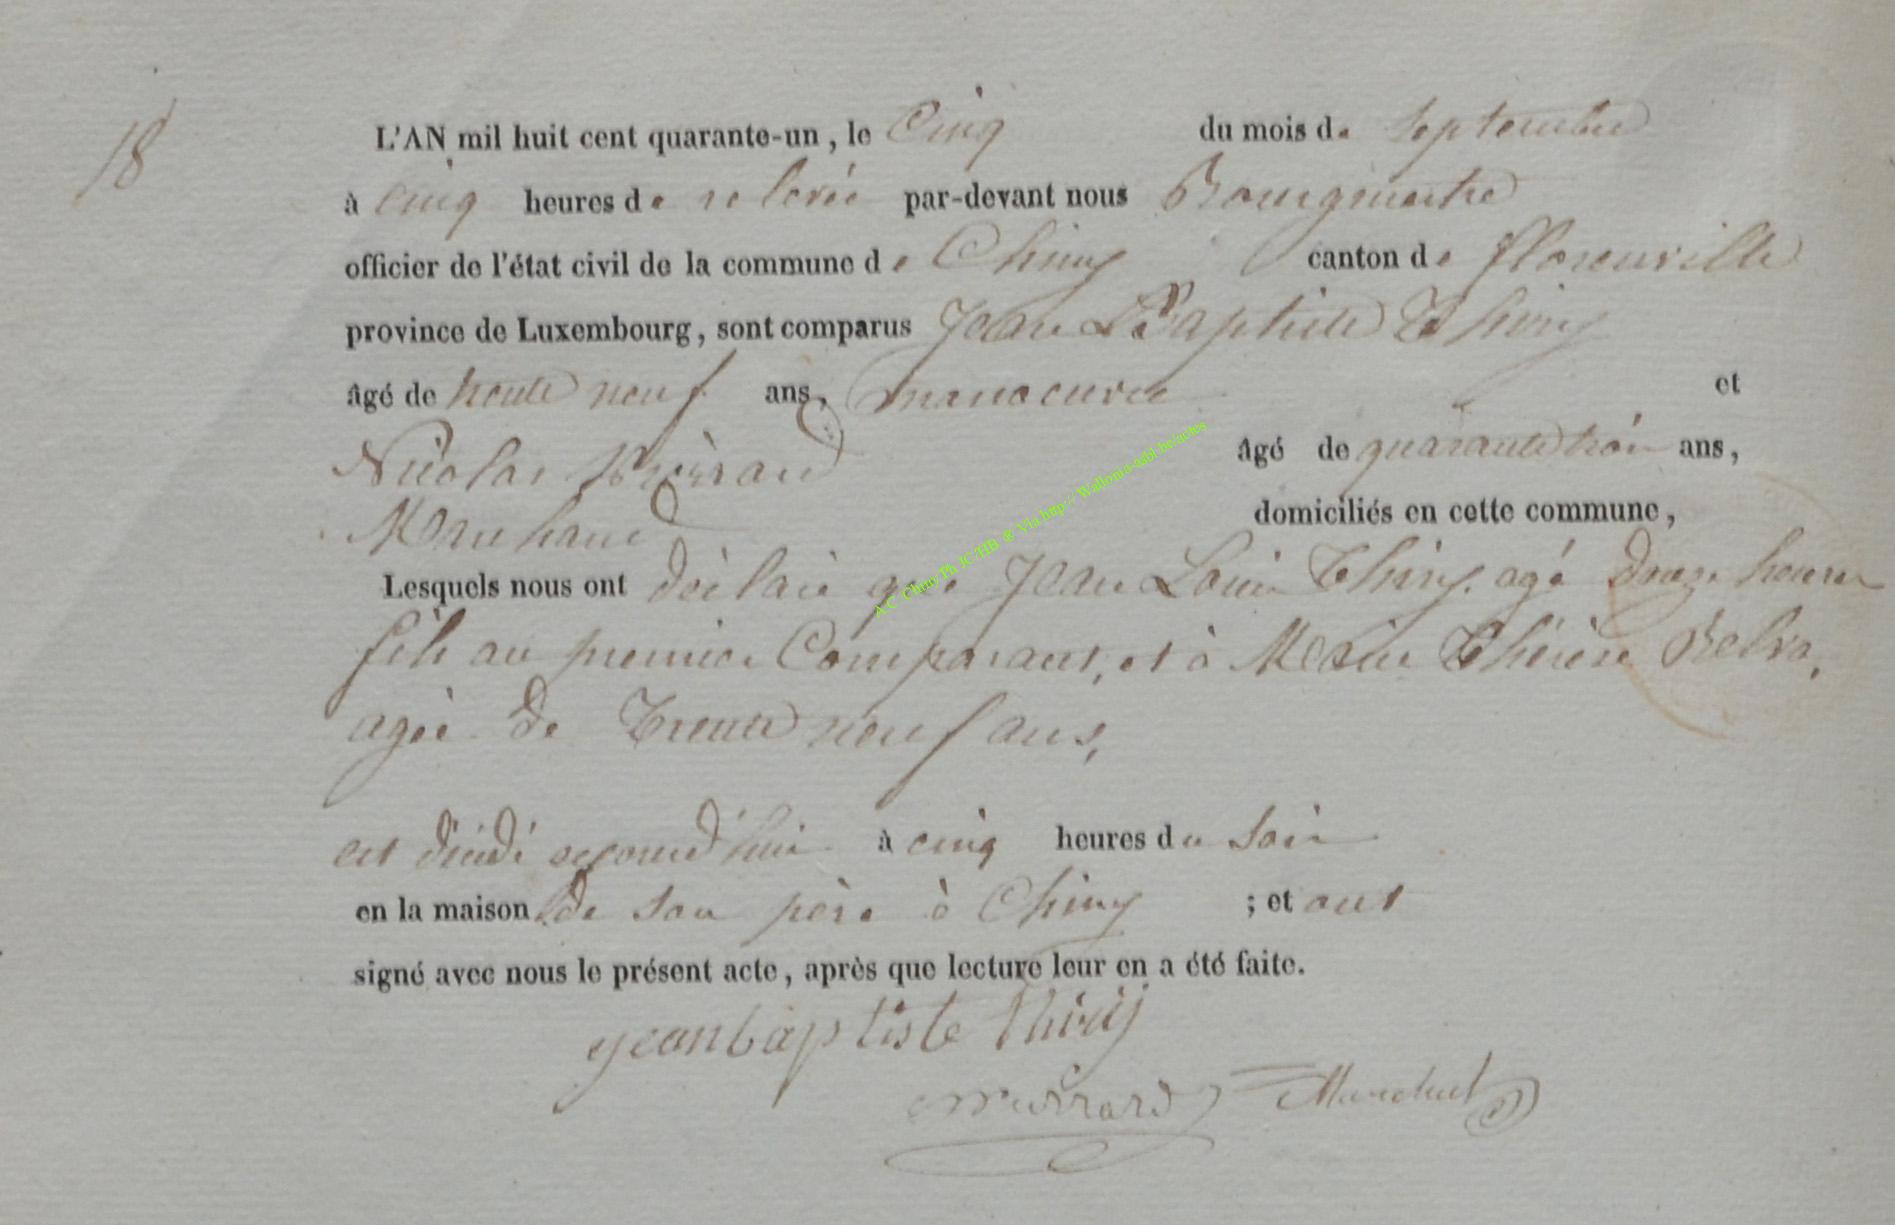 18
L'AN mil huit cent quarante-un, le Cinq du mois de septembre
à cinq heures de relevée par-devant nous Bourgmestre
officier de l'état civil de la commune de Chiny canton de florenville
province de Luxembourg, sont comparus Jean Baptiste Thiry
âgé de trente neuf ans, manoeuvre et
Nicolas âgé de quarante trois ans,
Marchand domiciliés en cette commune,
A.C Chiny Ph JC HB @ Via http:// Wallonia-asbl.be/actes
Lesquels nous ont déclaré que Jean Louis Thiry, agé douze heures
fils au premier Comparant, et à Marie Thérèse
agée de Trente neuf ans,
est décédé aujourd'hui à cinq heures du Soir
en la maison de son père à Chiny ; et ont
signé avec nous le présent acte, après que lecture leur en a été faite.
jeanbaptiste thiry